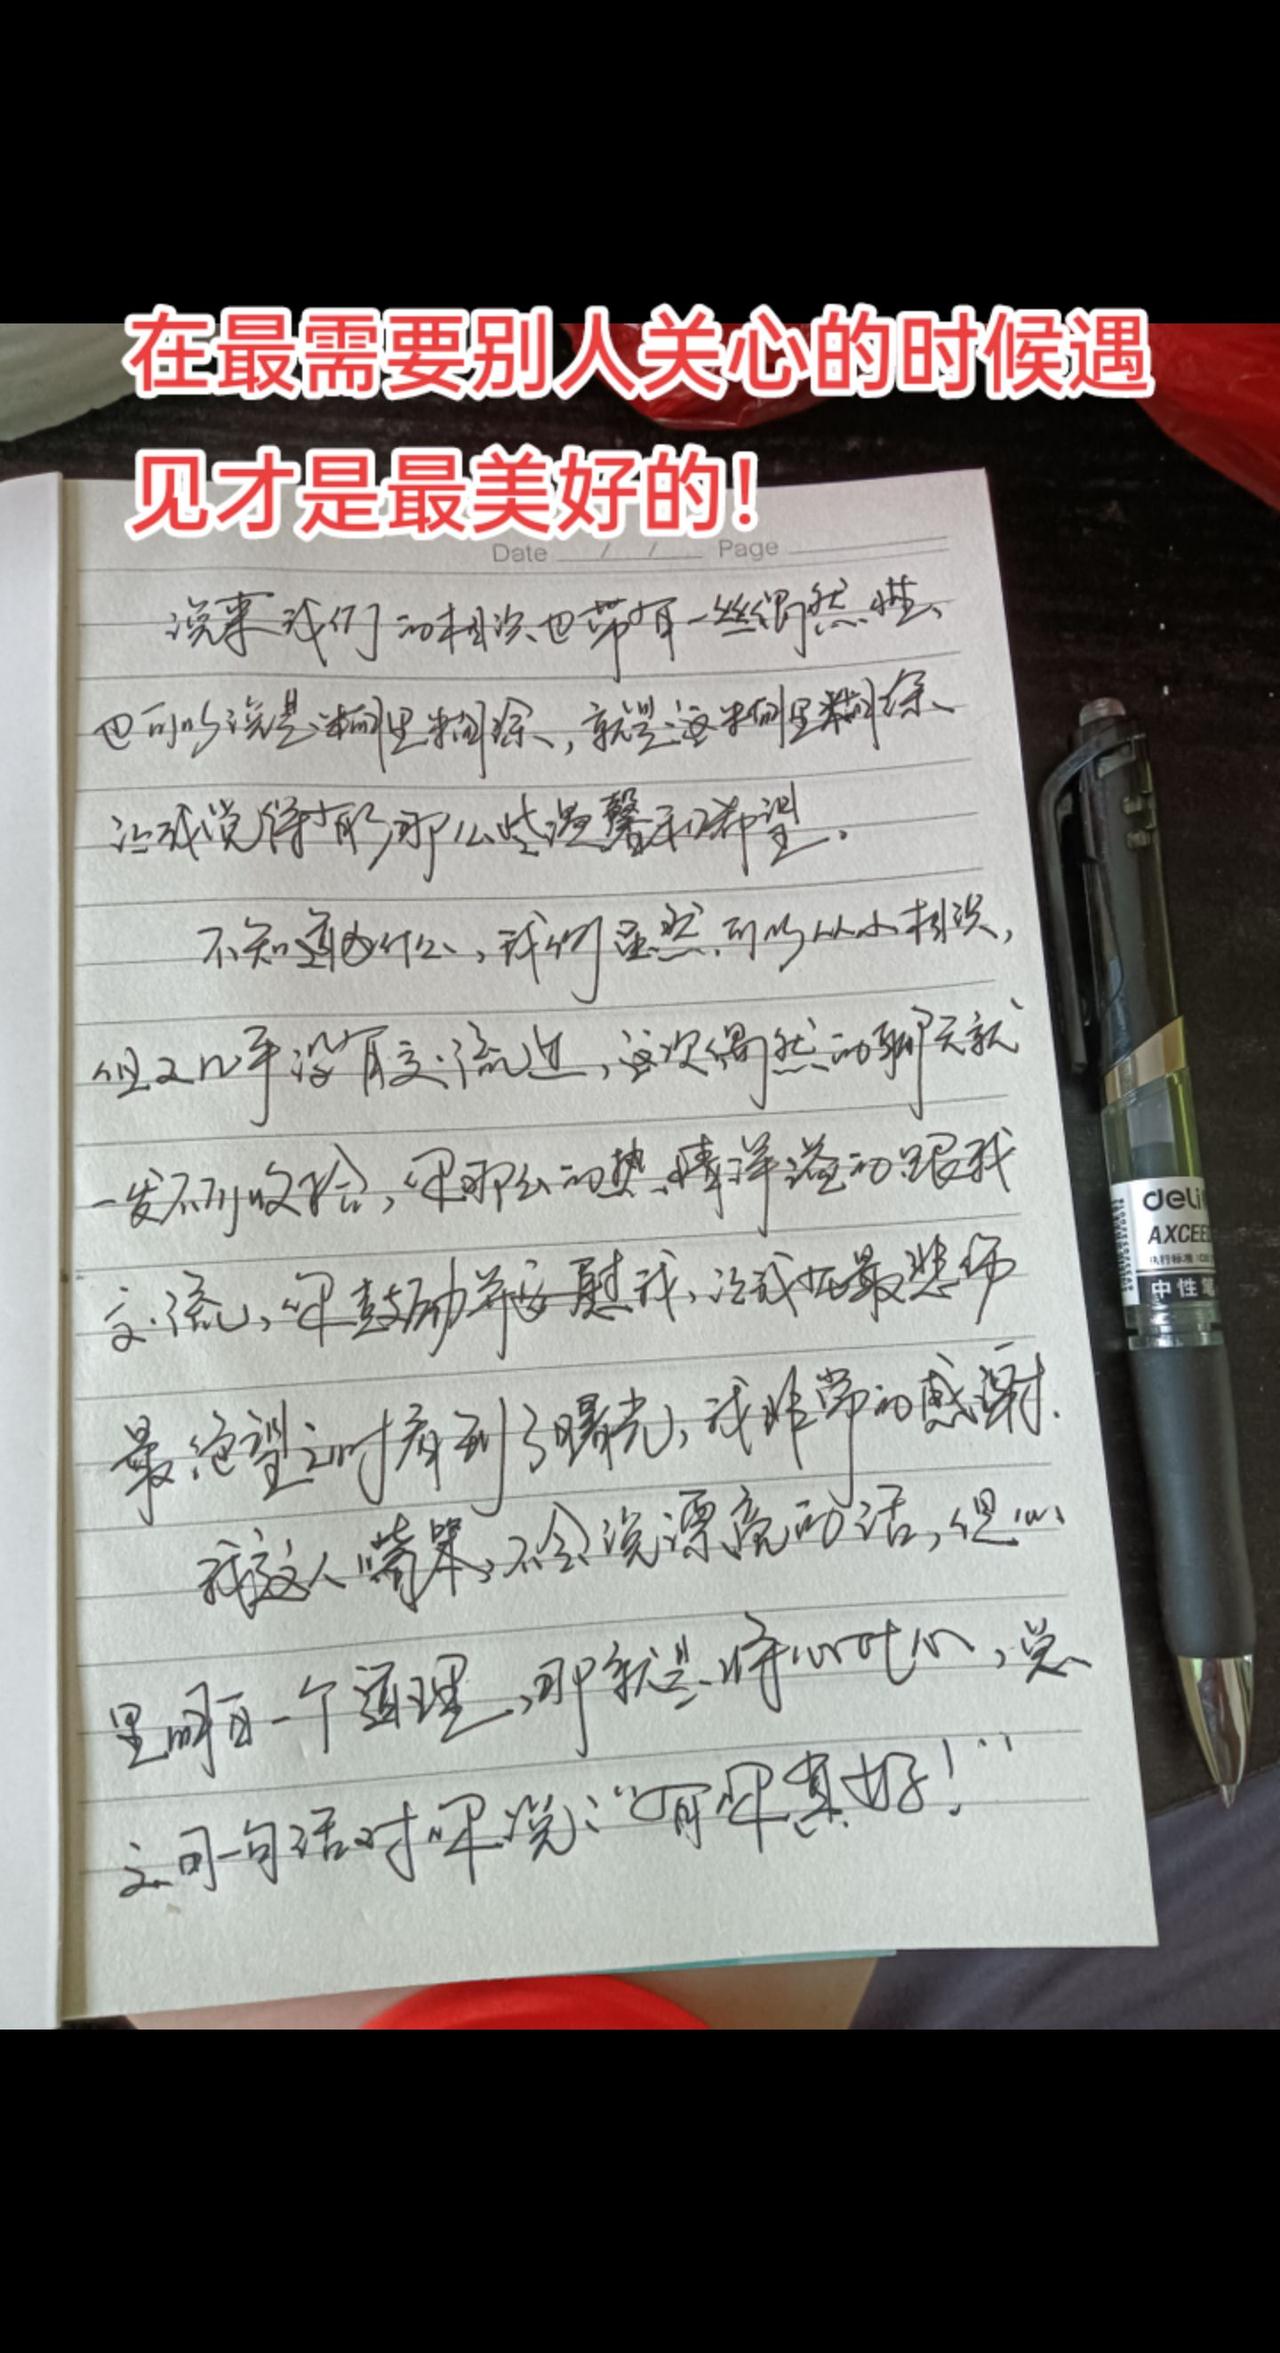 在最需要别人关心的时候遇
见才是最美好的！
Date / / Page
说来我们的相识也带有一丝偶然性、
也可以说是糊里糊涂、就是这糊里糊涂、
让我觉得有了那么些温馨和希望。
不知道为什么，我们虽然可以从小相识，
但又几乎没有交流过，这次偶然的聊天就
一发不可收拾，你那么的热情洋溢的跟我
交流，你鼓励并安慰我，让我在最悲伤
最绝望之时看到了曙光，我非常的感谢.
我这人嘴笨，不会说漂亮的话，但心
里明白一个道理，那就是将心对心，总
之一句话对你说：“有你真好！”
deli
AXCEE
执行标准
中性笔